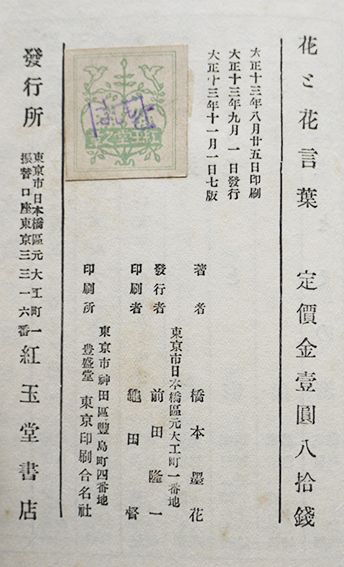 花と花言葉　定價金壹圓八拾錢
大正十三年八月廿五日印刷
大正十三年九月一日發行
大正十三年十一月一日七版
著者　橋本墨花
東京市日本橋區元大工町一番地
發行者　前田隆一
印刷者　龜田督
東京市神田區豐島町四番地
印刷所　豊盛堂　東京印刷合名社
發行所　東京市日本橋區元大工町一
振替口座東京三三一六番
紅玉堂書店